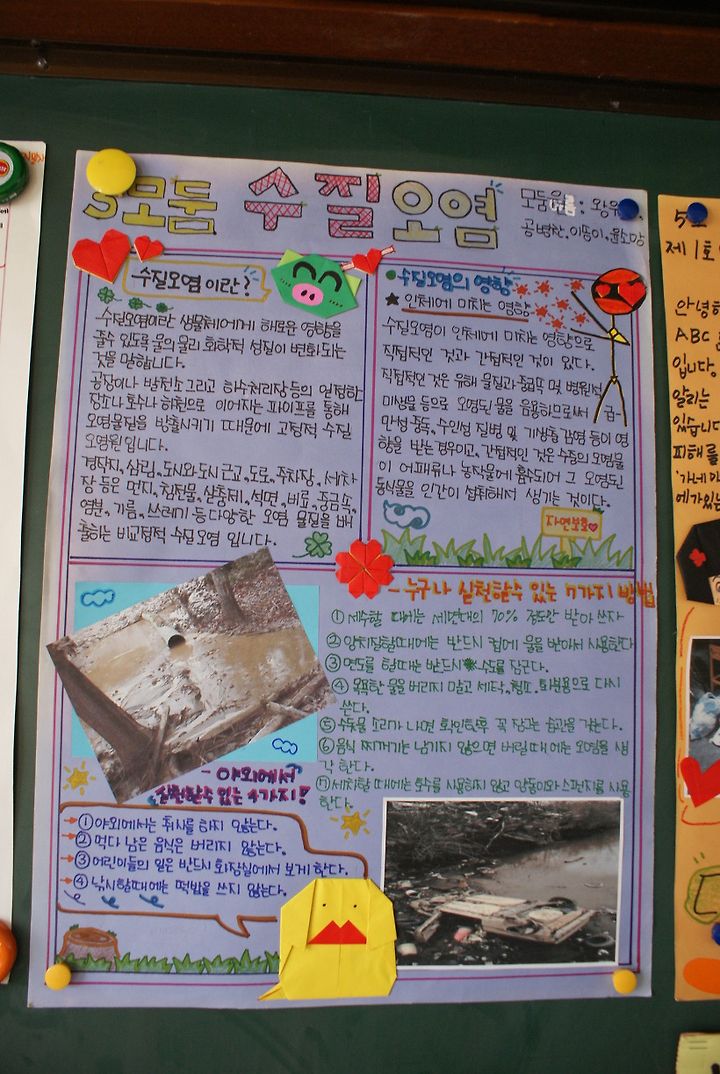 5모둠 수질오염
모둠이름 : 왕
공병찬, 이뚱이, 윤소망
수질오염 이란?
수질오염이란 생물체에게 해로운 영향을
줄수 있도록 물의 물리 화학적 성질이 변화되는
것을 말합니다.
공장이나 발전소 그리고 하수처리장 등의 일정한
장소나 호수나 하천으로 이어지는 파이프를 통해
오염물질을 방출시키기 때문에 고정적 수질
오염원 입니다.
경작지, 삼림, 도시와 도시 근교, 도로, 주차장, 세차
장 등은 먼지, 침전물, 살충제, 석면, 비료, 중금속,
염분, 기름, 쓰레기 등 다양한 오염 물질을 배
출하는 비고정적 수질오염 입니다.
수질오염의 영향
★ 인체에 미치는 영향
수질오염이 인체에 미치는 영향으로
직접적인 것과 간접적인 것이 있다.
직접적인 것은 유해 물질과 중금속 및 병원적
미생물 등으로 오염된 물을 음용하므로써 급·
만성 중독, 수인성 질병 및 기생충 감염 등이 영
향을 받는 경우이고, 간접적인 것은 수중의 오염물
이 어패류나 농작물에 흡수되어 그 오염된
동식물을 인간이 섭취해서 생기는 것이다.
자연보호
- 누구나 실천할수 있는 7가지 방법
① 세수할 때에는 세면대의 70% 정도만 받아 쓰자
② 양치질할때에는 반드시 컵에 물을 받아서 사용한다
③ 면도를 할때는 반드시 수도를 잠근다.
④ 목욕한 물을 버리지 말고 세탁, 청소, 화분용으로 다시
쓴다.
⑤ 수돗물 소리가 나면 확인한후 꼭 잠그는 습관을 갖는다.
⑥ 음식 찌꺼기는 남기지 않으며 버릴때 에는 오염을 생
각 한다.
⑦ 세차할 때에는 호수를 사용하지 않고 양동이와 스펀지를 사용
한다.
- 야외에서
실천할수 있는 4가지!
① 야외에서는 취사를 하지 않는다.
② 먹다 남은 음식은 버리지 않는다.
③ 어린이들의 일은 반드시 화장실에서 보게 한다.
④ 낚시할때에는 떡밥을 쓰지 않는다.
제 1호
안녕하
ABC
입니다.
알리는
있습니다
피해를